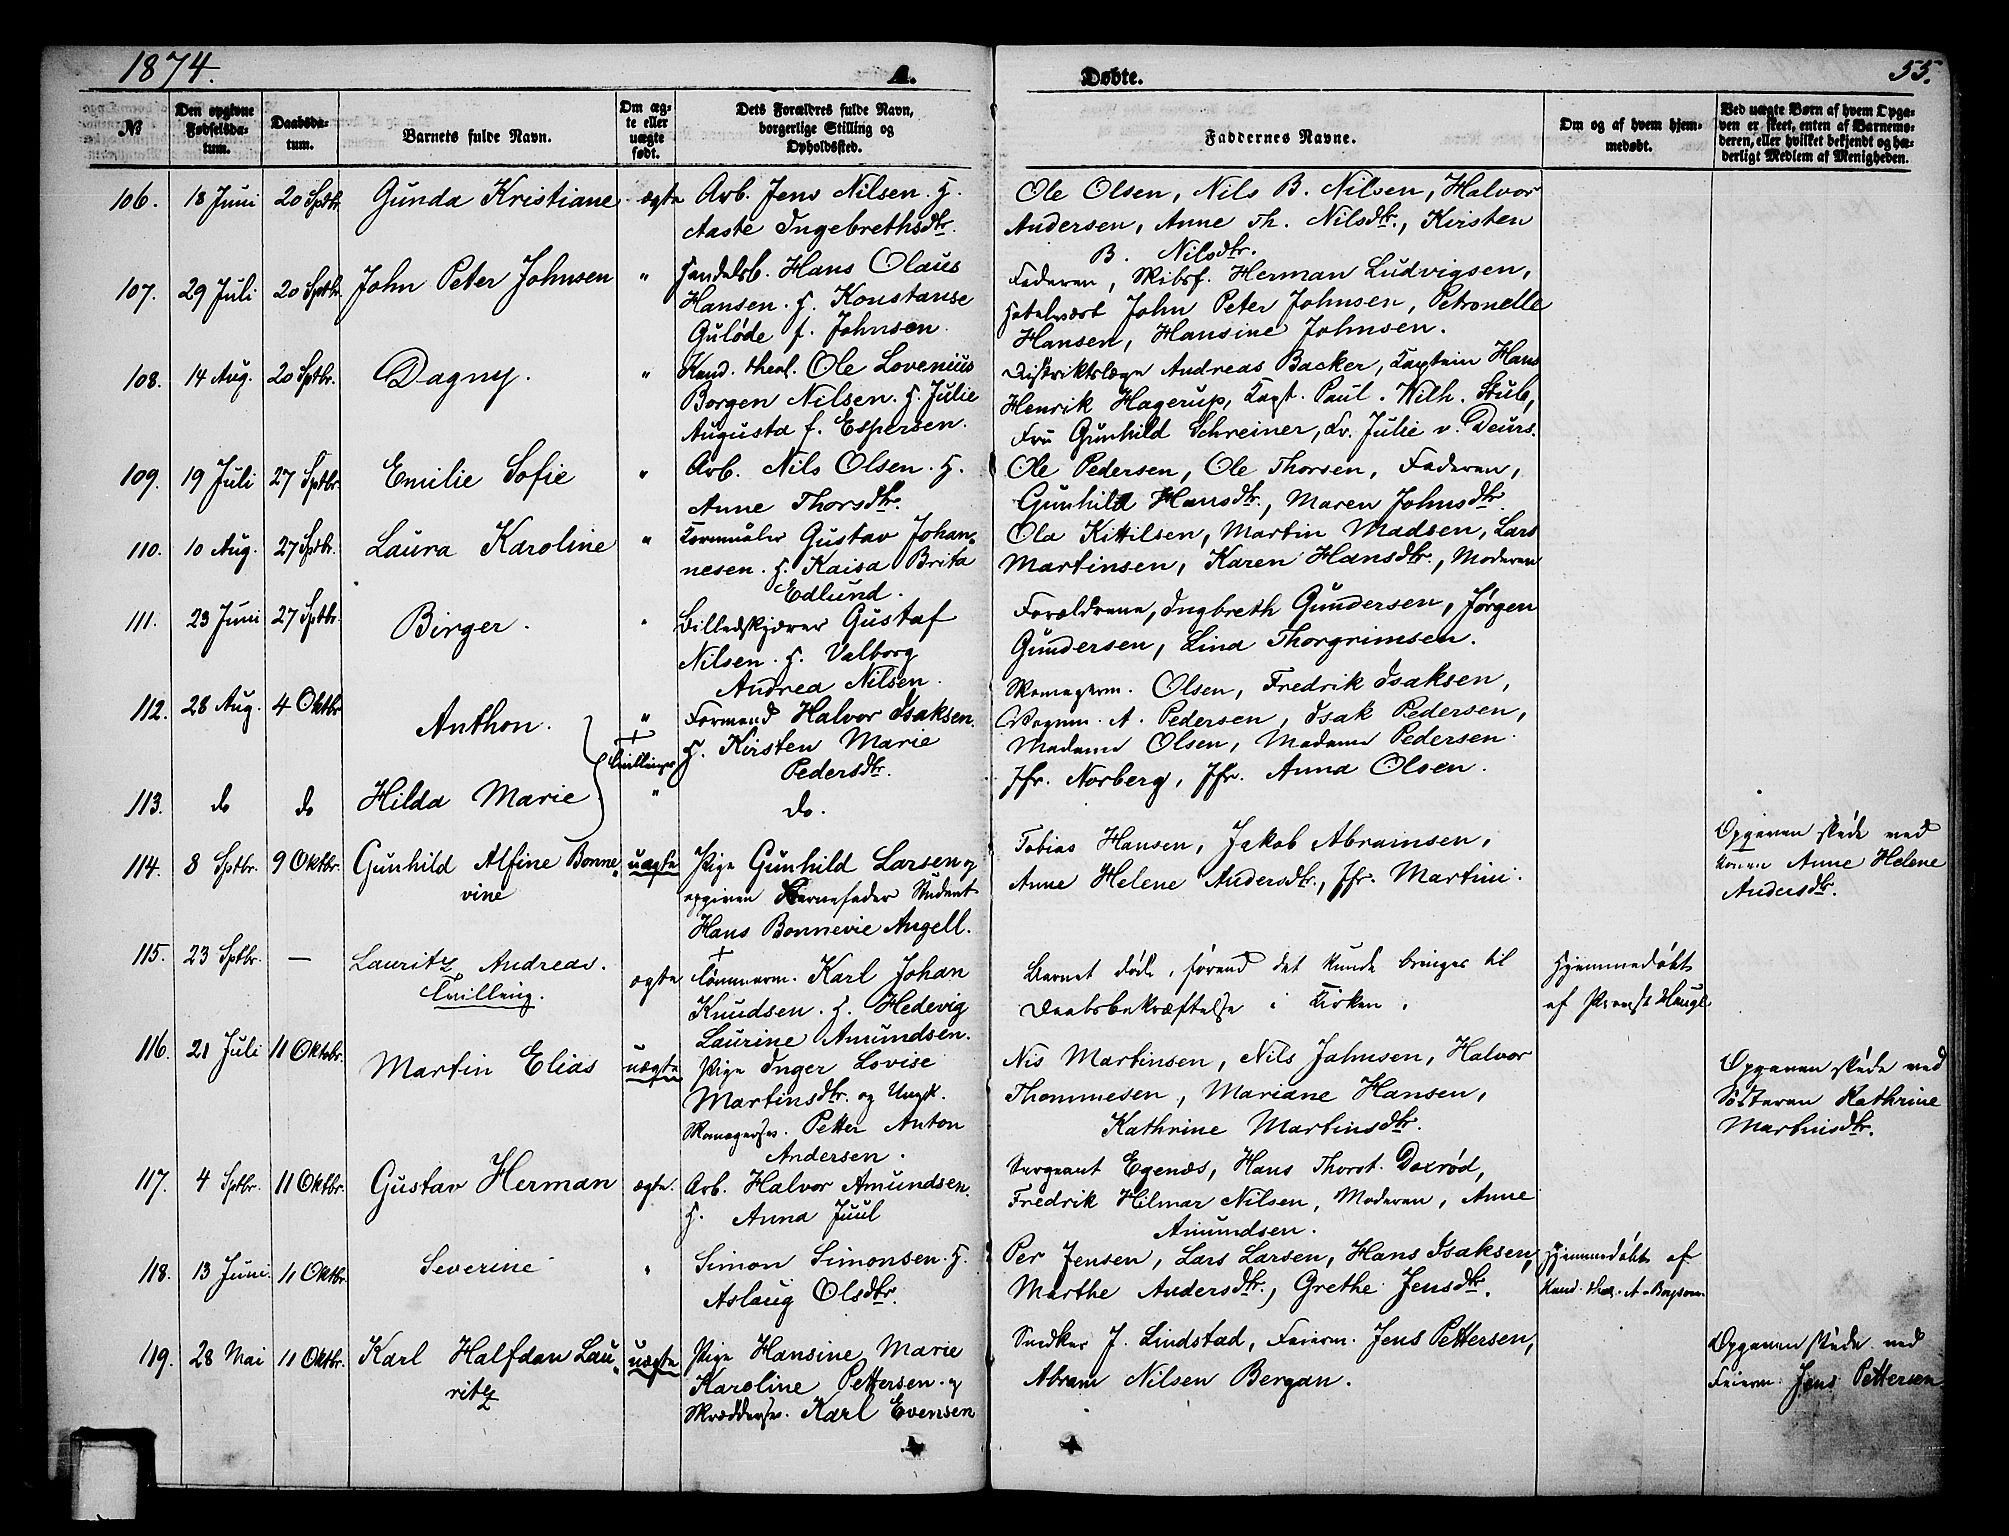 1874.
A. Døbte.
55.
№
Den opgivne Fødselsdatum.
Daabsdatum.
Barnets fulde Navn.
Om ægte eller uægte født.
Dets Forældres fulde Navn, borgerlige Stilling og Opholdssted.
Faddernes Navne.
Om og af hvem hjemmedøbt.
Ved uægte Børn af hvem Opgaven er skeet, enten af Barnemoderen, eller hvilket bekjendt og hæderligt Medlem af Menigheden.
106. 18 Juni 20 Sptbr. Gunda Kristiane ægte Arb. Jens Nilsen. H.
Aaste Ingebrethsdtr.
Ole Olsen, Nils B. Nilsen, Halvor
Andersen, Anne Th. Nilsdtr., Kirsten
B. Nilsdtr.
107. 29 Juli 20 Sptbr. John Peter Johnsen " Handelsb. Hans Olaus
Hansen. H. Konstanse
Guløde f. Johnsen.
Faderen, Skibsf. Herman Ludvigsen,
Hotelvært John Peter Johnsen, Petronelle
Hansen, Hansine Johnsen.
108. 14 Aug. 20 Sptbr. Dagny. " Kand. theol. Ole Lovenius
Borgen Nilsen. H. Julie
Augusta f. Espersen.
Distriktslæge Andreas Backer, Kaptein Hans
Henrik Hagerup, Kapt. Paul. Wilh. Stub,
Fru Gunhild Schreiner, Fr. Julie v. Deurs.
109. 19 Juli 27 Sptbr. Emilie Sofie " Arb. Nils Olsen. H.
Anne Thorsdtr.
Ole Pedersen, Ole Thorsen, Faderen,
Gunhild Hansdtr., Maren Johnsdtr.
110. 10 Aug. 27 Sptbr. Laura Karoline " Kornmåler Gustav Johan-
nesen. H. Kaisa Brita
Edlund.
Ola Kittilsen, Martin Madsen, Lars
Martinsen, Karen Hansdtr., Moderen
111. 23 Juni 27 Sptbr. Birger. " Billedskjærer Gustaf
Nilsen. H. Valborg
Andrea Nilsen.
Forældrene, Ingbreth Gundersen, Jørgen
Gundersen, Lina Thorgrimsen.
112. 28 Aug. 4 Oktbr. Anthon. " Tvillinger Formand Halvor Isaksen.
H. Kirsten Marie
Pedersdtr.
Skomagerm. Olsen, Fredrik Isaksen,
Vognm. A. Pedersen, Isak Pedersen,
Madame Olsen, Madame Pedersen.
Jfr. Norberg, Jfr. Anna Olsen.
113. do do Hilda Marie " do.
114. 8 Sptbr. 9 Oktbr. Gunhild Alfine Bonne-
vine
uægte Pige Gunhild Larsen og
opgiven Barnefader Student
Hans Bonnevie Angell.
Tobias Hansen, Jakob Abramsen,
Anne Helene Andersdtr., Jfr. Martini.
Opgaven skede ved
Konen Anne Helene
Andersdtr.
115. 23 Sptbr. — Lauritz Andreas.
Tvilling.
ægte Tømmerm. Karl Johan
Knudsen. H. Hedevig
Laurine Amundsen.
Barnet døde, førend det kunde bringes til
Daabsbekræftelse i Kirken.
Hjemmedøbt
af Provst Hauge
116. 21 Juli 11 Oktbr. Martin Elias uægte Pige Inger Lovise
Martinsdtr. og Ungk.
Skomagersv. Petter Anton
Andersen.
Nis Martinsen, Nils Jahnsen, Halvor
Thommesen, Mariane Hansen,
Kathrine Martinsdtr.
Opgaven skede ved
Søsteren Kathrine
Martinsdtr.
117. 4 Sptbr. 11 Oktbr. Gustav Herman ægte. Arb. Halvor Amundsen.
H. Anna Juul
Sergeant Egenæs, Hans Thorst. Doxrød,
Fredrik Hilmar Nilsen, Moderen, Anne
Amundsen.
118. 13 Juni 11 Oktbr. Severine " Simon Simonsen. H.
Aslaug Olsdtr.
Per Jensen, Lars Larsen, Hans Isaksen,
Marthe Andersdtr., Grethe Jensdtr.
Hjemmedøbt af
Kand. theol. A.
119. 28 Mai 11 Oktbr. Karl Halfdan Lau-
ritz
uægte Pige Hansine Marie
Karoline Pettersen. og
Skræddersv. Karl Evensen
Snedker J. Lindstad, Feierm. Jens Pettersen,
Abram Nilsen Bergan.
Opgaven skede ved
Feierm. Jens Pettersen